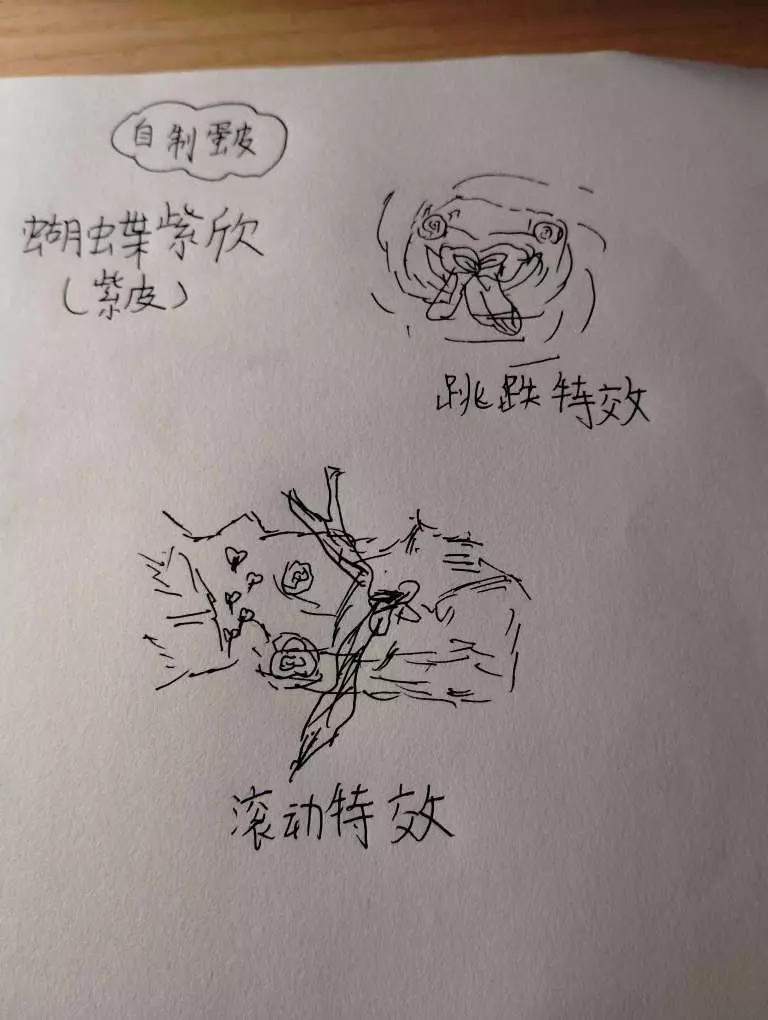 自制蛋皮
蝴蝶紫欣
(紫皮)
跳跌特效
滚动特效